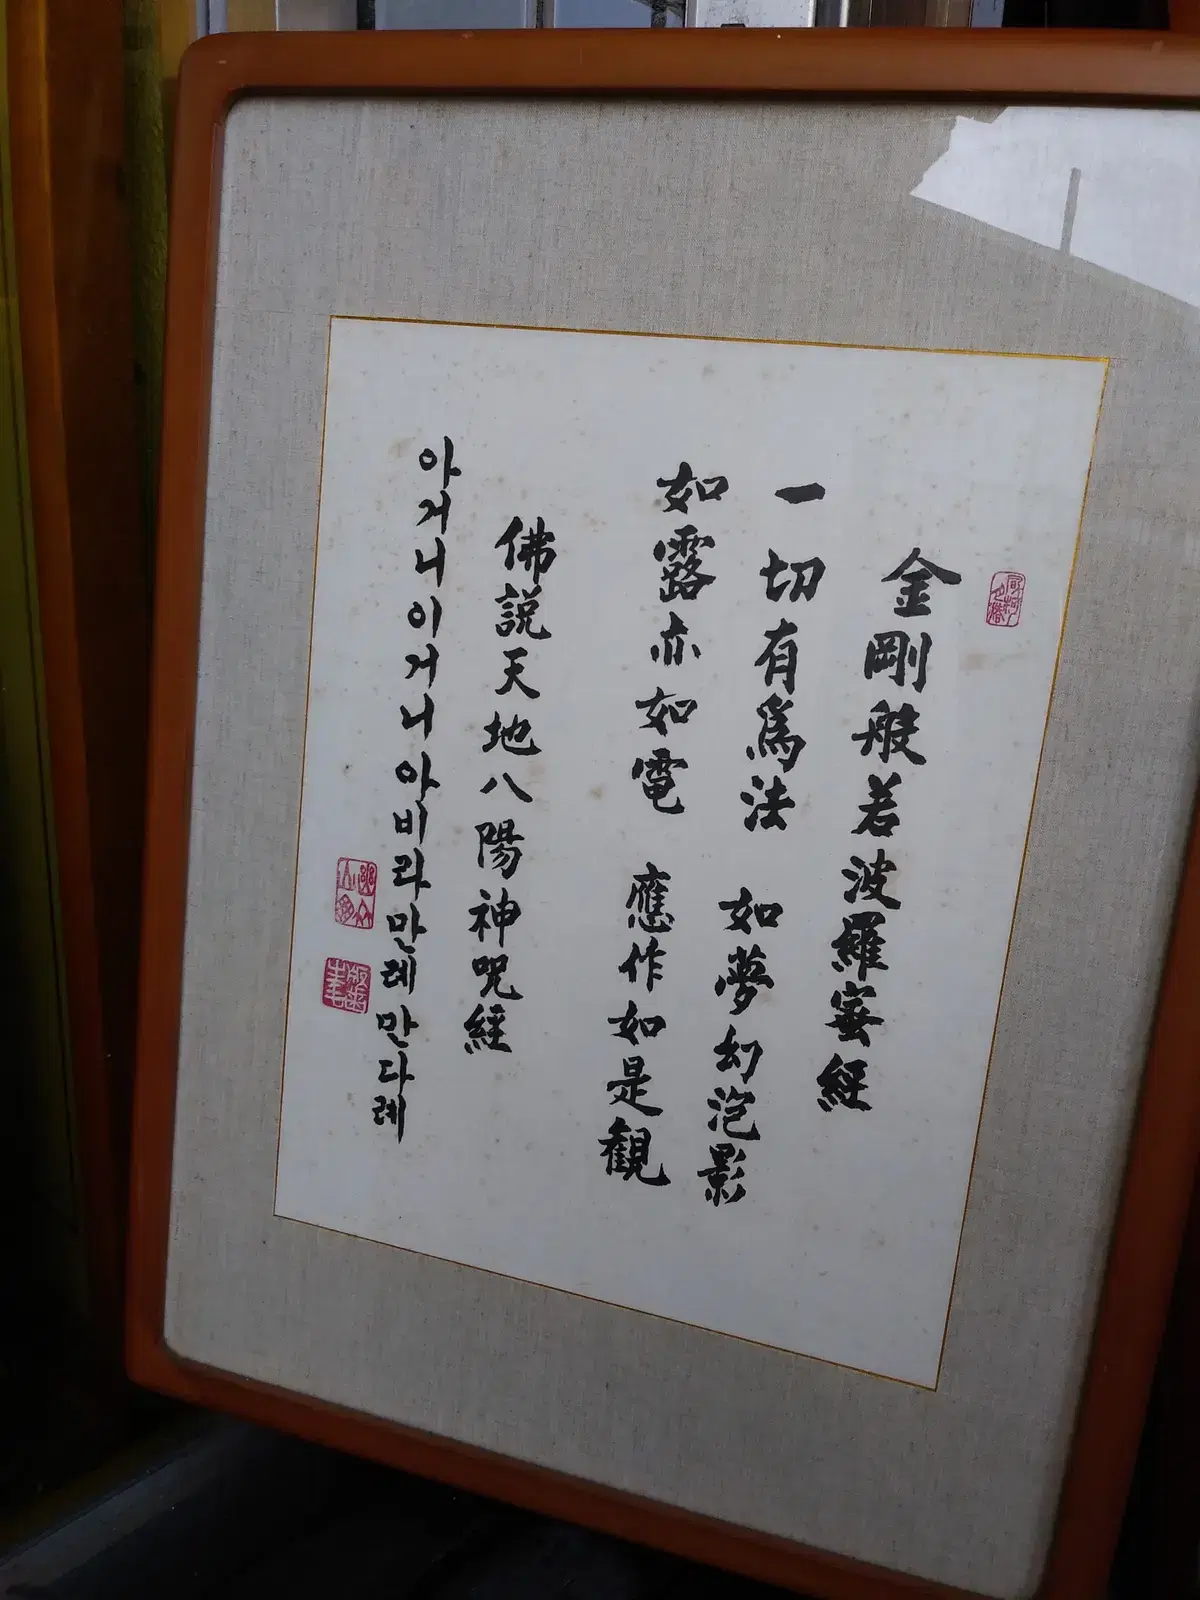 金剛般若波羅蜜經
一切有爲法 如夢幻泡影
如露亦如電 應作如是觀
佛説天地八陽神呪經
아거니이거니아비라만례만다례